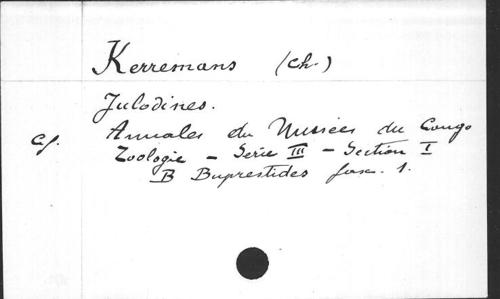 Kerremans (Ch.)
Julodines.
Cf. Annales du Musées du Congo
Zoologie - Série III - Section I
B Buprestides fasc. 1.